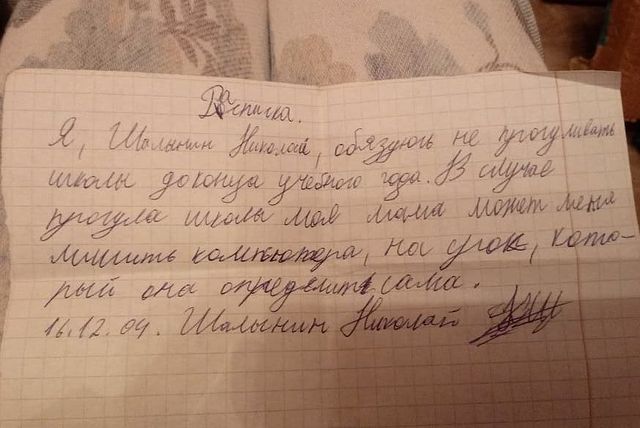 Расписка.
Я, Шалынин Николай, обязуюсь не прогуливать
школы доконца учебного года. В случае
прогула школы моя мама может меня
лишить компютера, на срок, кото-
рый она определит сама.
16.12.04. Шалынин Николай